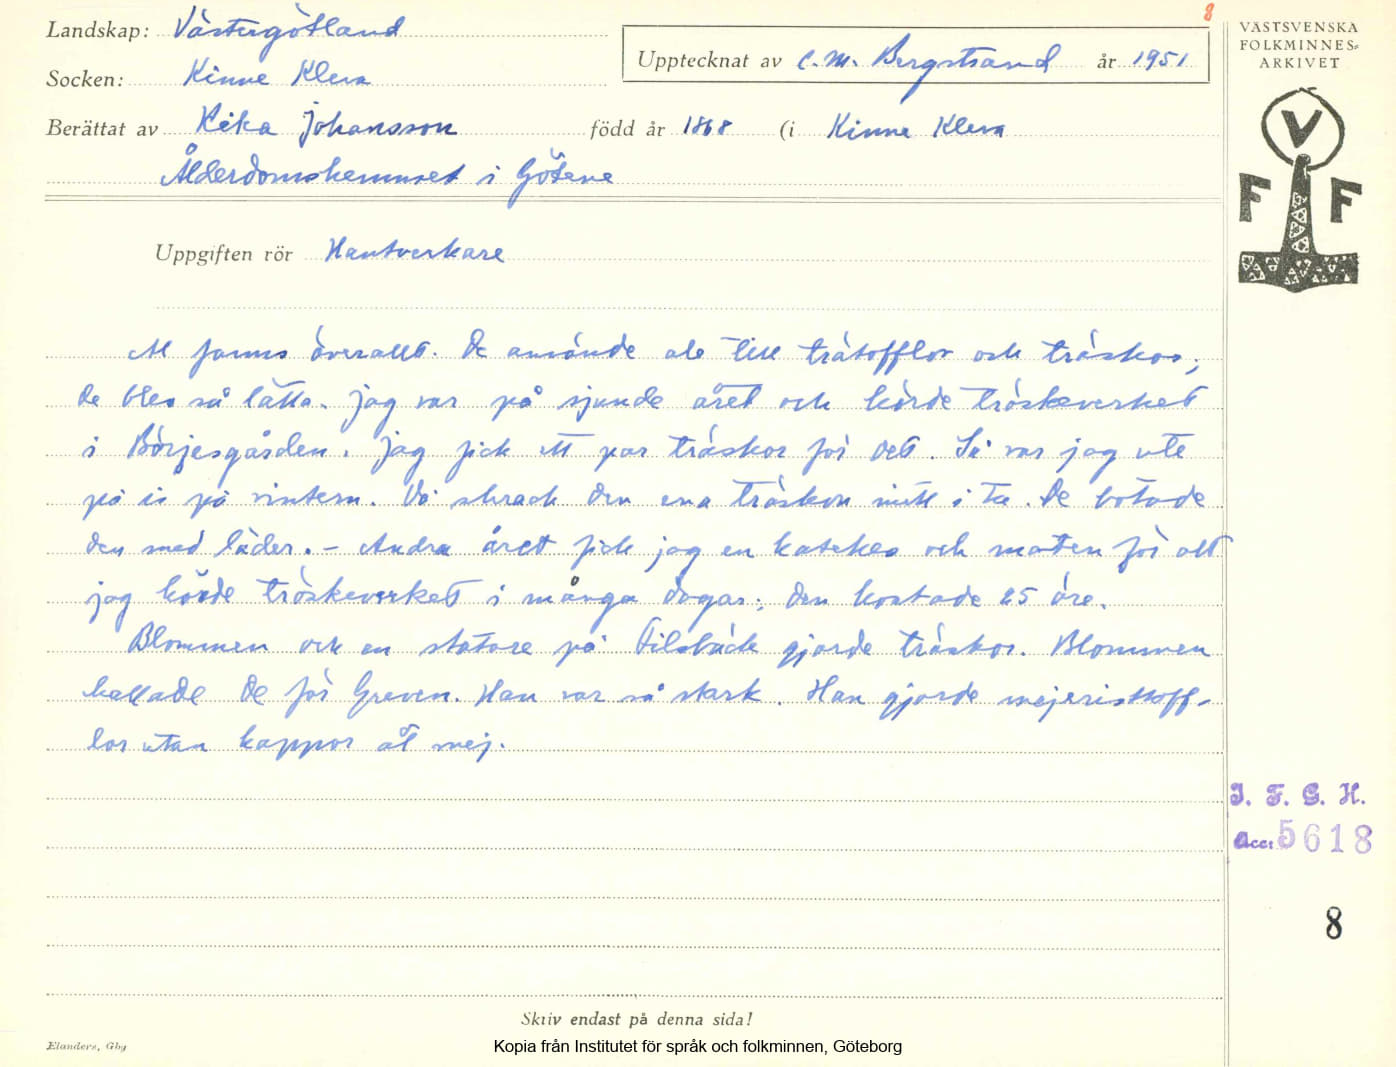 8
Landskap: Västergötland
Upptecknat av C. M. Bergstrand år 1951
Socken: Kinne Kleva
Berättat av Kika Johansson född år 1868 (i Kinne Kleva
Ålderdomshemmet i Götene
VÄSTSVENSKA
FOLKMINNES-
ARKIVET
V
F F
Uppgiften rör Hantverkare
Al fanns överallt. De använde ale till trätofflor och träskor,
de blev så lätta. Jag var på sjunde året och körde tröskeverket
i Börjesgården. Jag fick ett par träskor för det. Så var jag ute
på is på vintern. Då sprack den ena träskon mitt i tu. De botade
den med läder. - Andra året fick jag en katekes och maten för att
jag körde tröskeverket i många dagar; den kostade 25 öre.
Blommen och en statare på Filsbäck gjorde träskor. Blommen
kallade de för Greven. Han var så stark. Han gjorde mejeristtoff-
lor utan kappor åt mej.
I. F. G. H.
Acc: 5618
8
Skriv endast på denna sida!
Elanders, Gbg
Kopia från Institutet för språk och folkminnen, Göteborg